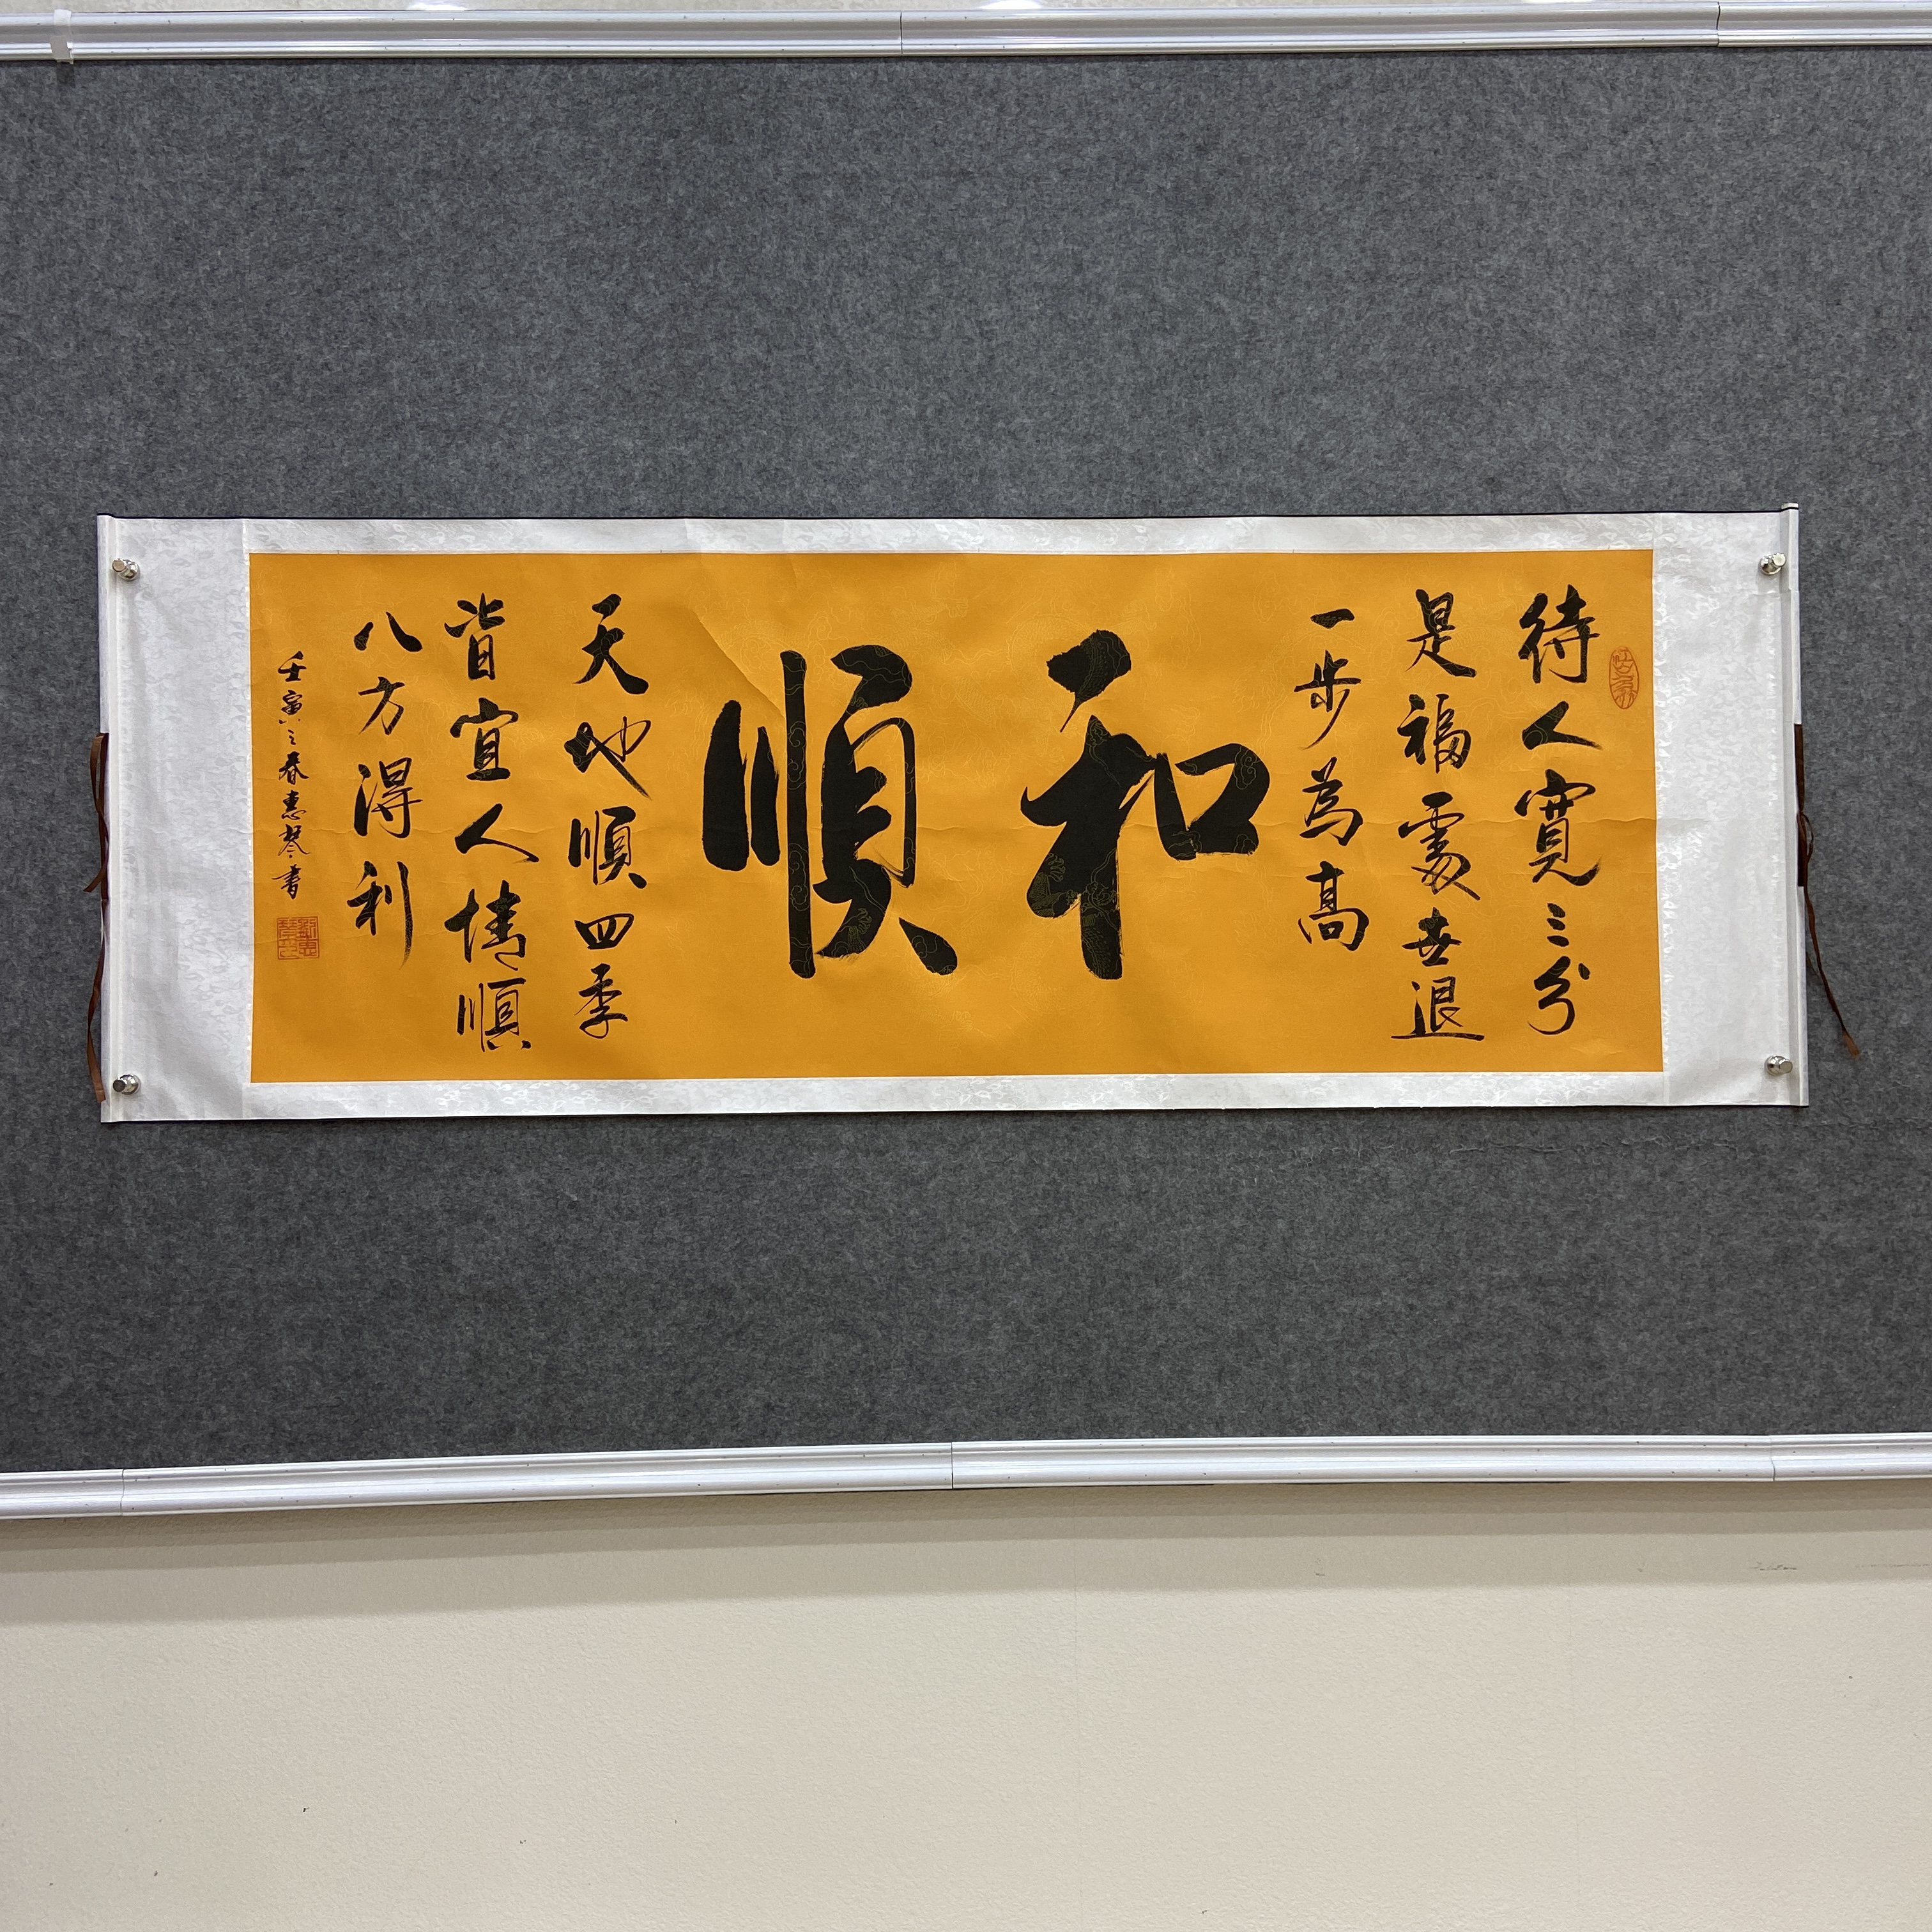 待人寬三分
是福處世退
一步為高
和順
天地順四季
皆宜人情順
八方得利
壬寅之春惠琴書